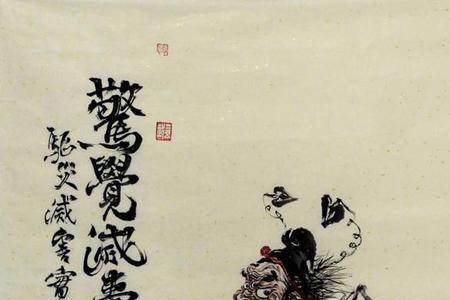 驚覺滅
驅災滅害實